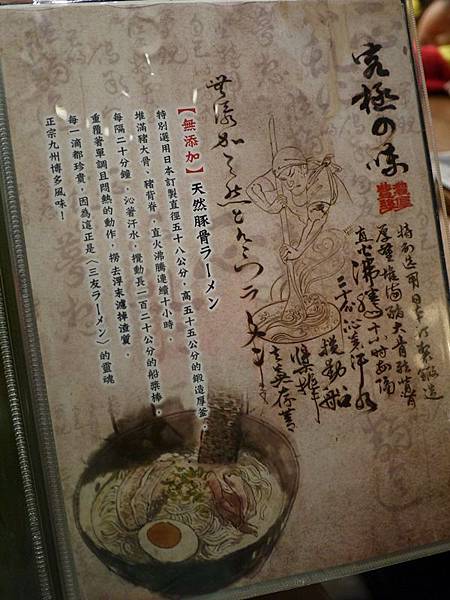 究極の味
特別選用日本訂製鍛造
直火沸騰十小時每隔
二十分沁著汗水
攪動船
槳棒
無添加天然とんこつラーメン
【無添加】天然豚骨ラーメン
特別選用日本訂製直徑五十八公分，高五十五公分的鍛造厚釜，
堆滿豬大骨、豬背脊，直火沸騰連續十小時，
每隔二十分鐘，沁著汗水，攪動長一百二十公分的船槳棒，
重覆著單調且悶熱的動作，撈去浮末濾掉渣質，
每一滴都珍貴，因為這正是〈三友ラーメン〉的靈魂
正宗九州博多風味！